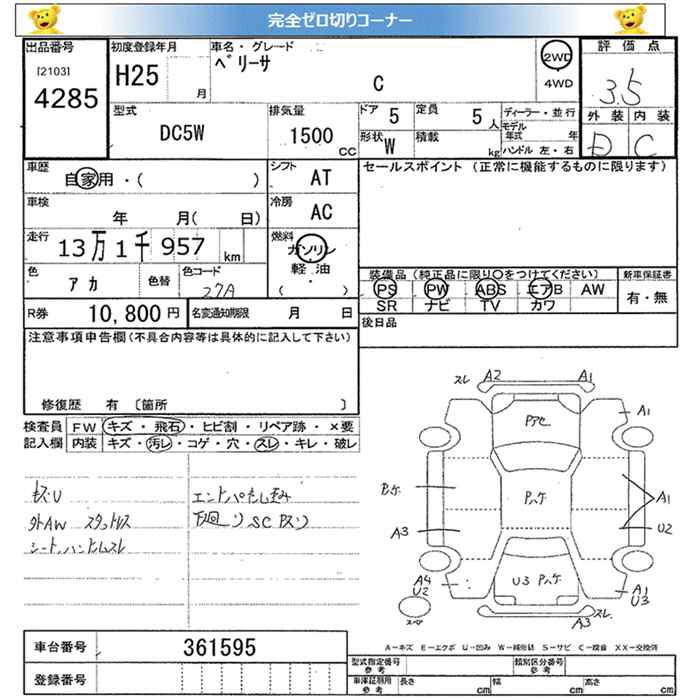 完全ゼロ切りコーナー
出品番号
[2103]
4285
初度登録年月
H25 月
車名・グレード
ベリーサ
C
2WD
4WD
評価点
3.5
外装 内装
D C
型式
DC5W
排気量
1500 CC
ドア 5
定員 5 人
形状 W
積載 kg
ディーラー・並行
モデル年式 年
ハンドル 左・右
車歴
自家用・( )
シフト
AT
セールスポイント (正常に機能するものに限ります)
車検
年 月( 日)
冷房
AC
走行
13万1千957 km
燃料
ガソリン
軽・油
( )
色
アカ
色替
色コード
27A
装備品 (純正品に限り○をつけてください)
PS PW ABS エアB AW
SR ナビ TV カワ
新車保証書
有・無
R券 10,800円
名変通知期限 月 日
後日品
注意事項申告欄(不具合内容等は具体的に記入して下さい)
修復歴 有 〔箇所 〕
検査員記入欄
FW キズ・飛石・ヒビ割・リペア跡・×要
内装 キズ・汚レ・コゲ・穴・スレ・キレ・破レ
キズU
外AW スタットレス
シート,ハンドルスレ
下廻りSCPスリ
スレ A2 A1
A1
Pアセ
Pハケ
Pハケ
A1
U2
A3
A4
U2
スペア
U3 Pハケ
A1
U3
スレ
A3
A－キズ E－エクボ U－凹み W－補修跡 S－サビ C－腐食 XX－交換済
車台番号 361595
登録番号
型式指定番号 参考
類別区分番号 参考
車庫証明用 参考
長さ cm
幅 cm
高さ cm